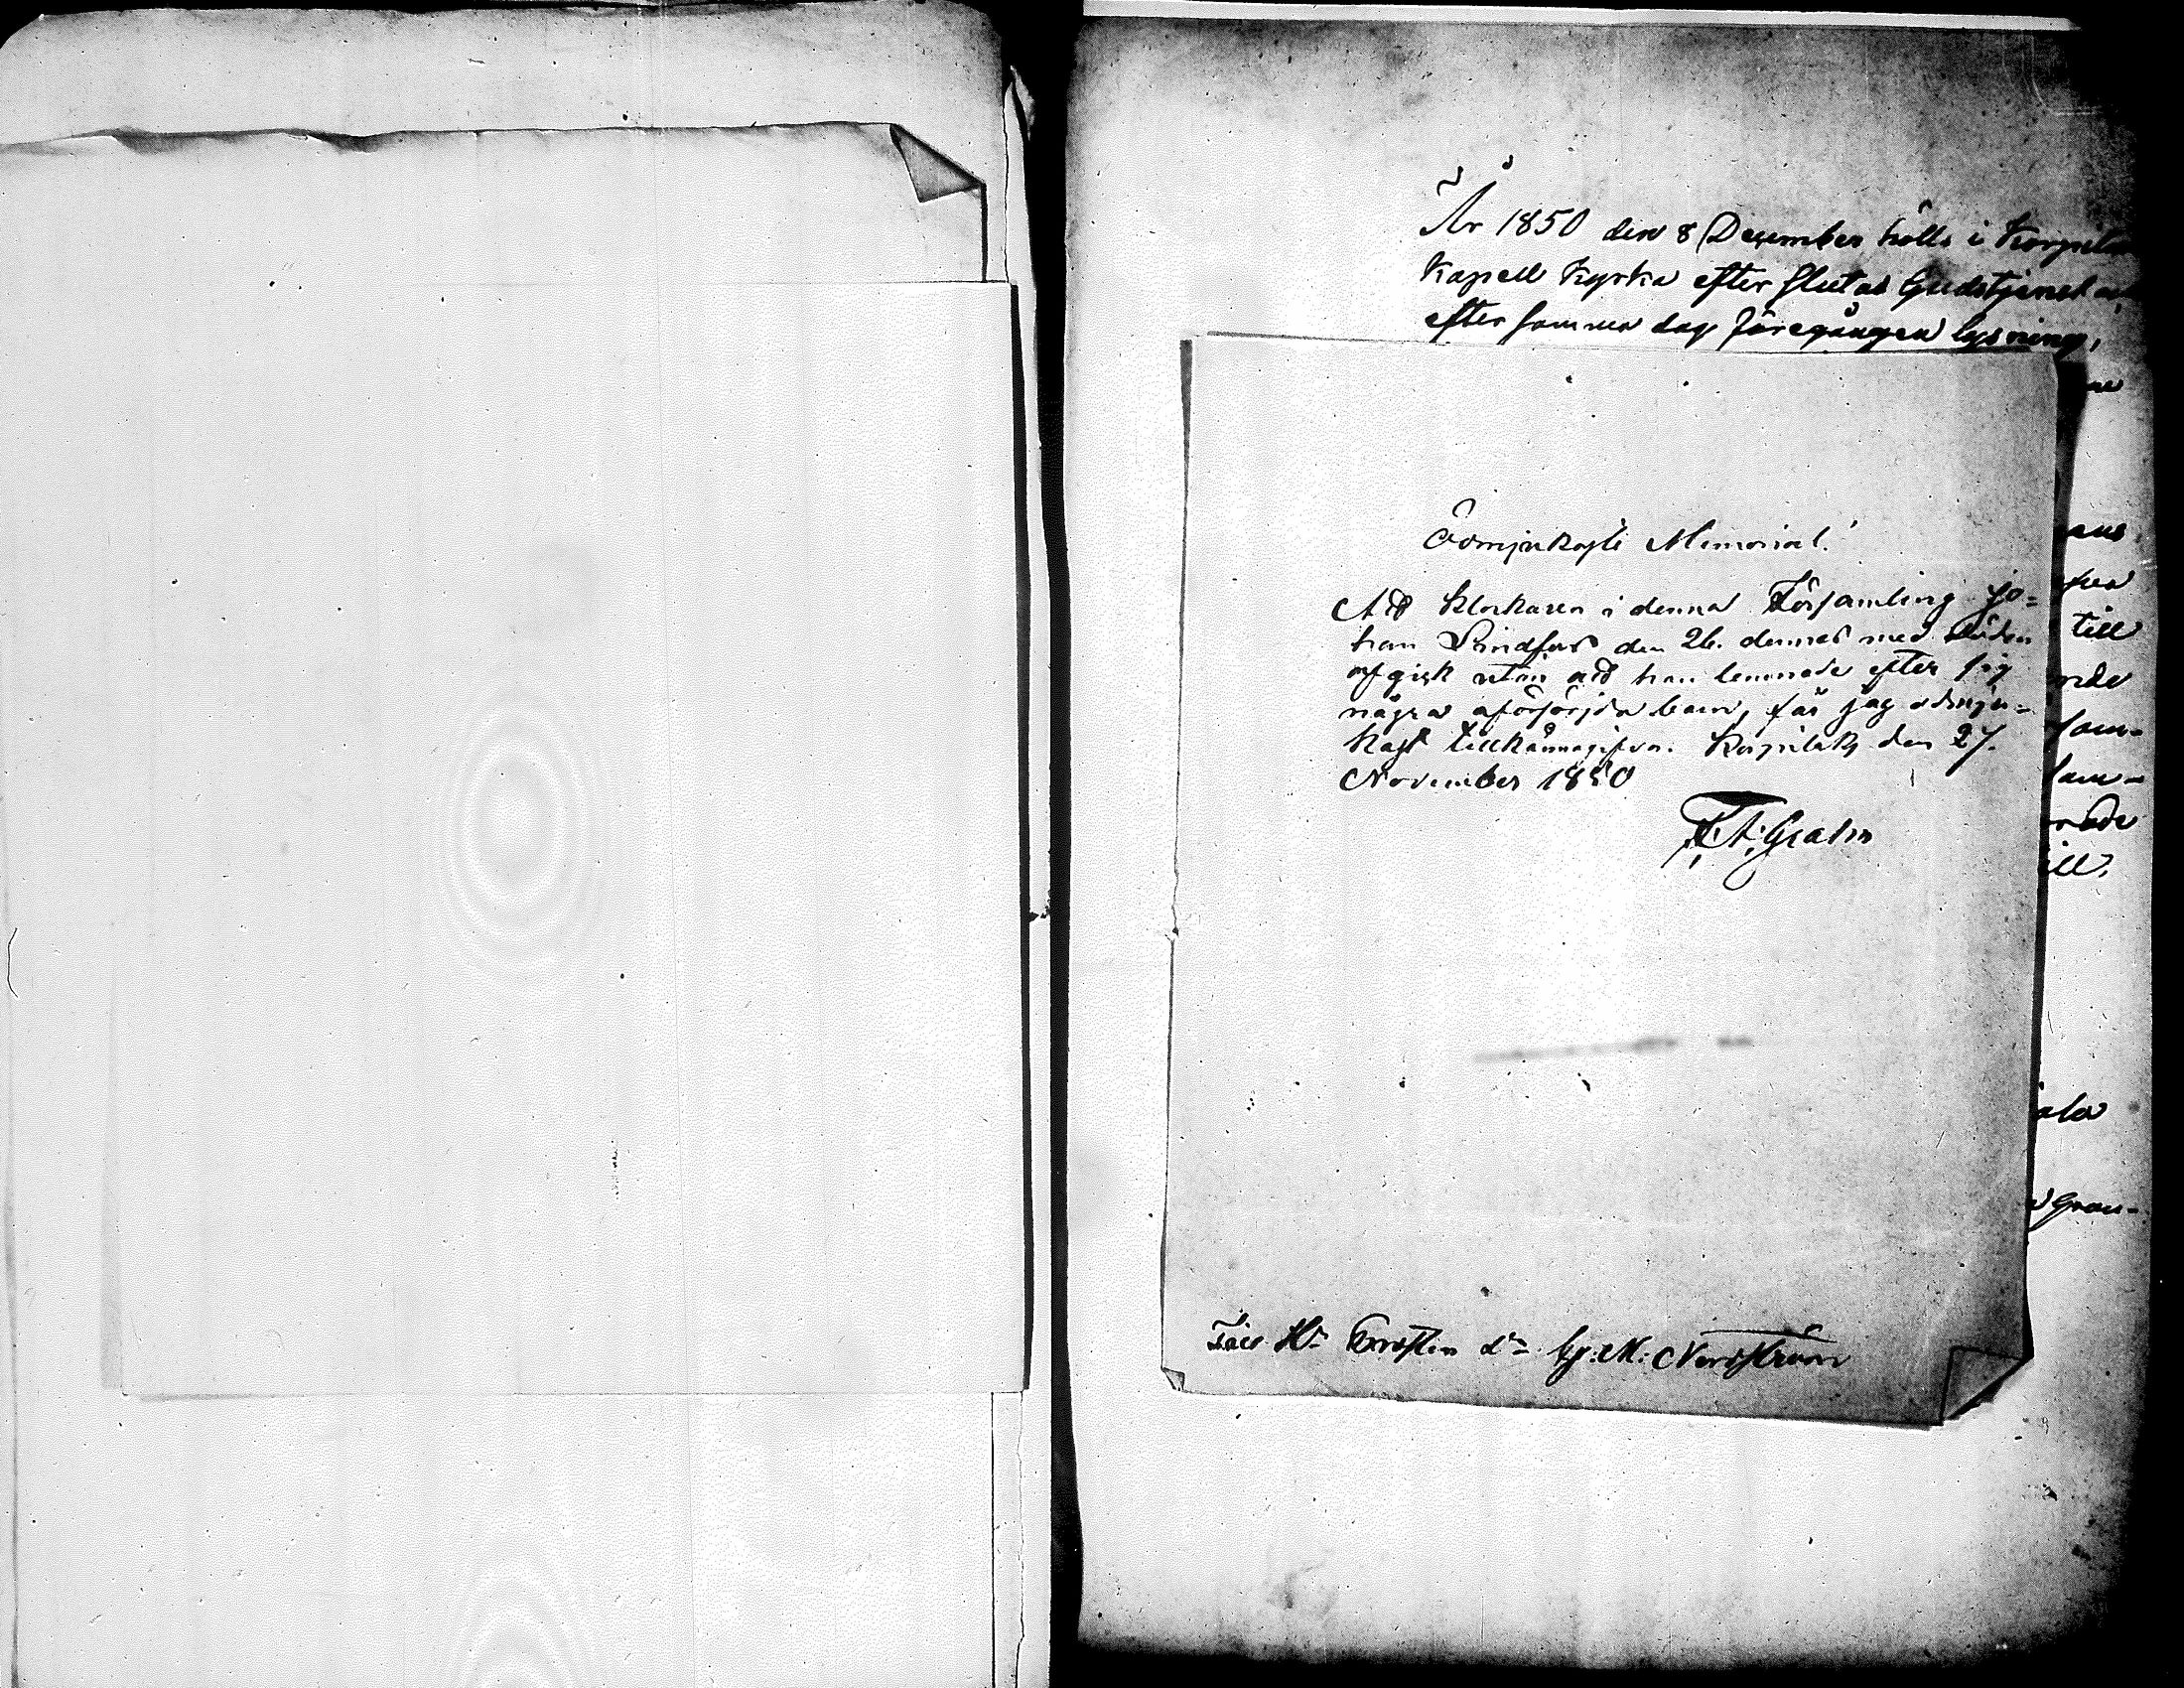 År 1850 den 8 December hölls i Korpila
Kapell Kyrka efter slutad Gudstjenst
efter samma dag föregången lysning,
Ödmjukaste Memorial!
Att Klockaren i denna Församling Jo=
han Lindfors den 26. dennes med döden
afgick utan att han lemnade efter sig
några oförsörjda barn, får jag ödmju=
kast tillkännagifva. Korpilaks den 27.
November 1850
F. A. Grahn
till
fam-
fam-
ill.
Gran-
G. M. Nordström